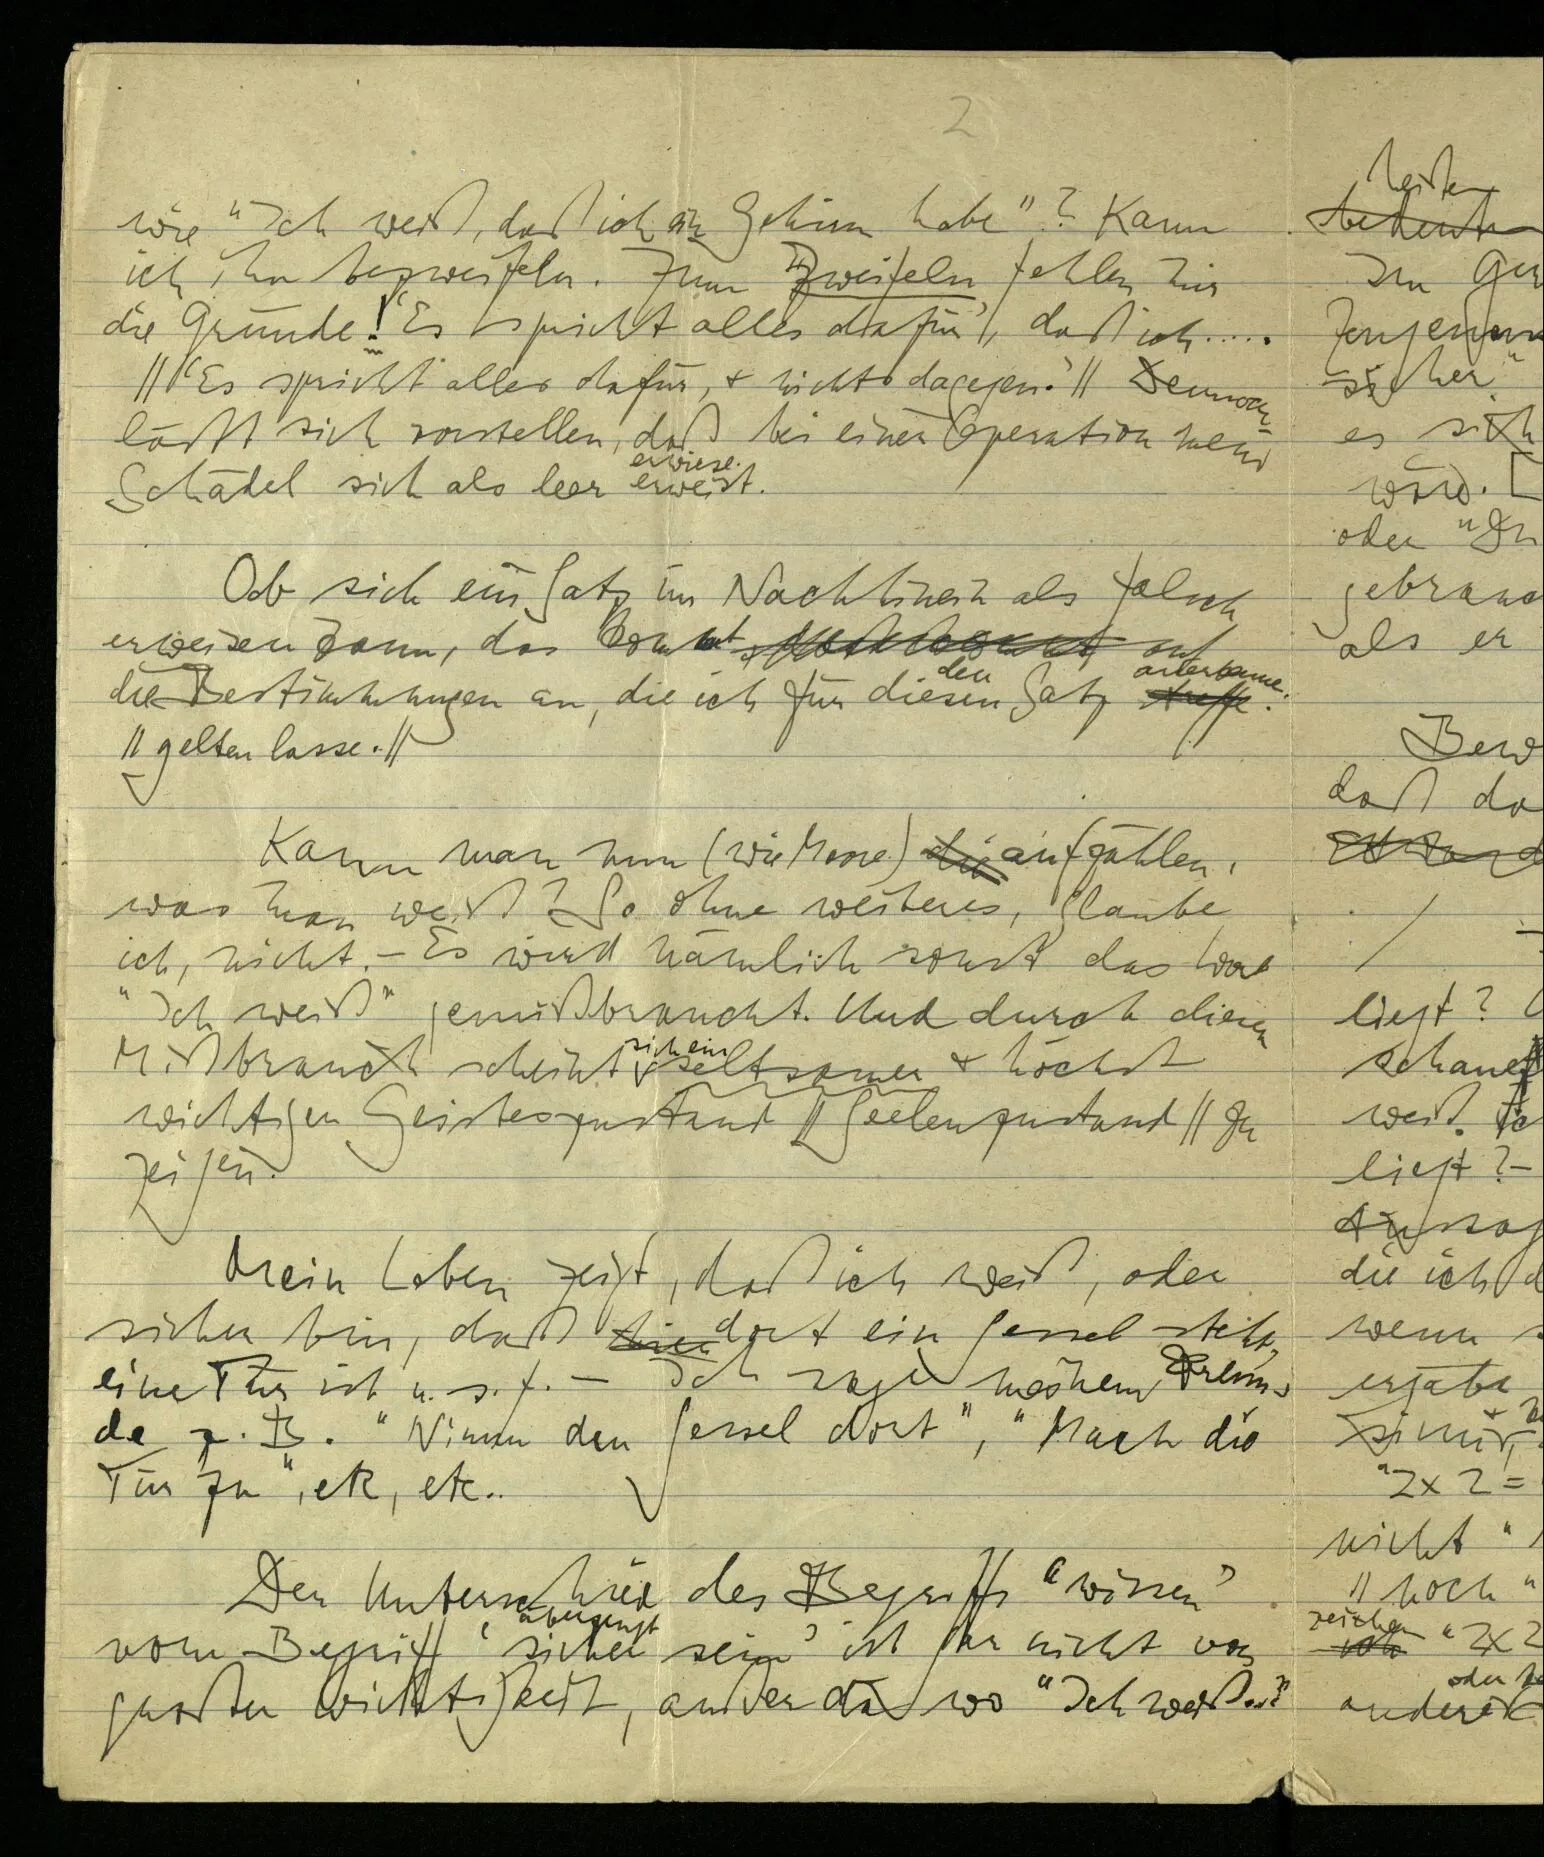 2
wäre "Ich weiß, daß ich ein Gehirn habe"? Kann
ich ihn bezweifeln. Zum "Zweifeln fehlen mir
die Gründe! "Es spricht alles dafür", daß ich.....
|| "Es spricht alles dafür, & nichts dagegen." || Dennoch
läßt sich vorstellen, daß bei einer Operation mein
erwiese.
Schädel sich als leer erweist.
Ob sich ein Satz im Nachhinein als falsch
erweisen kann, das kommt auf
den anerkenne.
die Bestimmungen an, die ich für diesen Satz treffe.
|| gelten lasse. ||
Kann man nun (wie Moore) die aufzählen,
was man weiß? So ohne weiteres, glaube
ich, nicht. – Es wird nämlich sonst das Wort
"Ich weiß" gemißbraucht. Und durch diesen
sich ein
Mißbrauch scheint seltsamer & höchst
wichtiger Geisteszustand || Seelenzustand || zu
zeigen.
Mein Leben zeigt, daß ich weiß, oder
sicher bin, daß hier dort ein Sessel steht,
eine Tür ist u. s. f. – Ich sage meinem Freun-
de z. B. "Nimm den Sessel dort", "Mach die
Tür zu", etc, etc..
Der Unterschied des Begriffs "wissen"
überzeugt
vom Begriff 'sicher sein' ist gar nicht von
großer Wichtigkeit, außer da wo "Ich weiß..."
heißen
bedeuten
Im Ger
Zeugen
sicher"
es sich
würd. [
oder "Ich
gebrauc
als er
Bew
daß da
/
liegt?
schaue
weiß. Ic
liegt? –
Aussag
die ich d
wenn s
ergäbe
"2x2=
nicht "
|| noch "
zeichen
"2x2
oder
andere